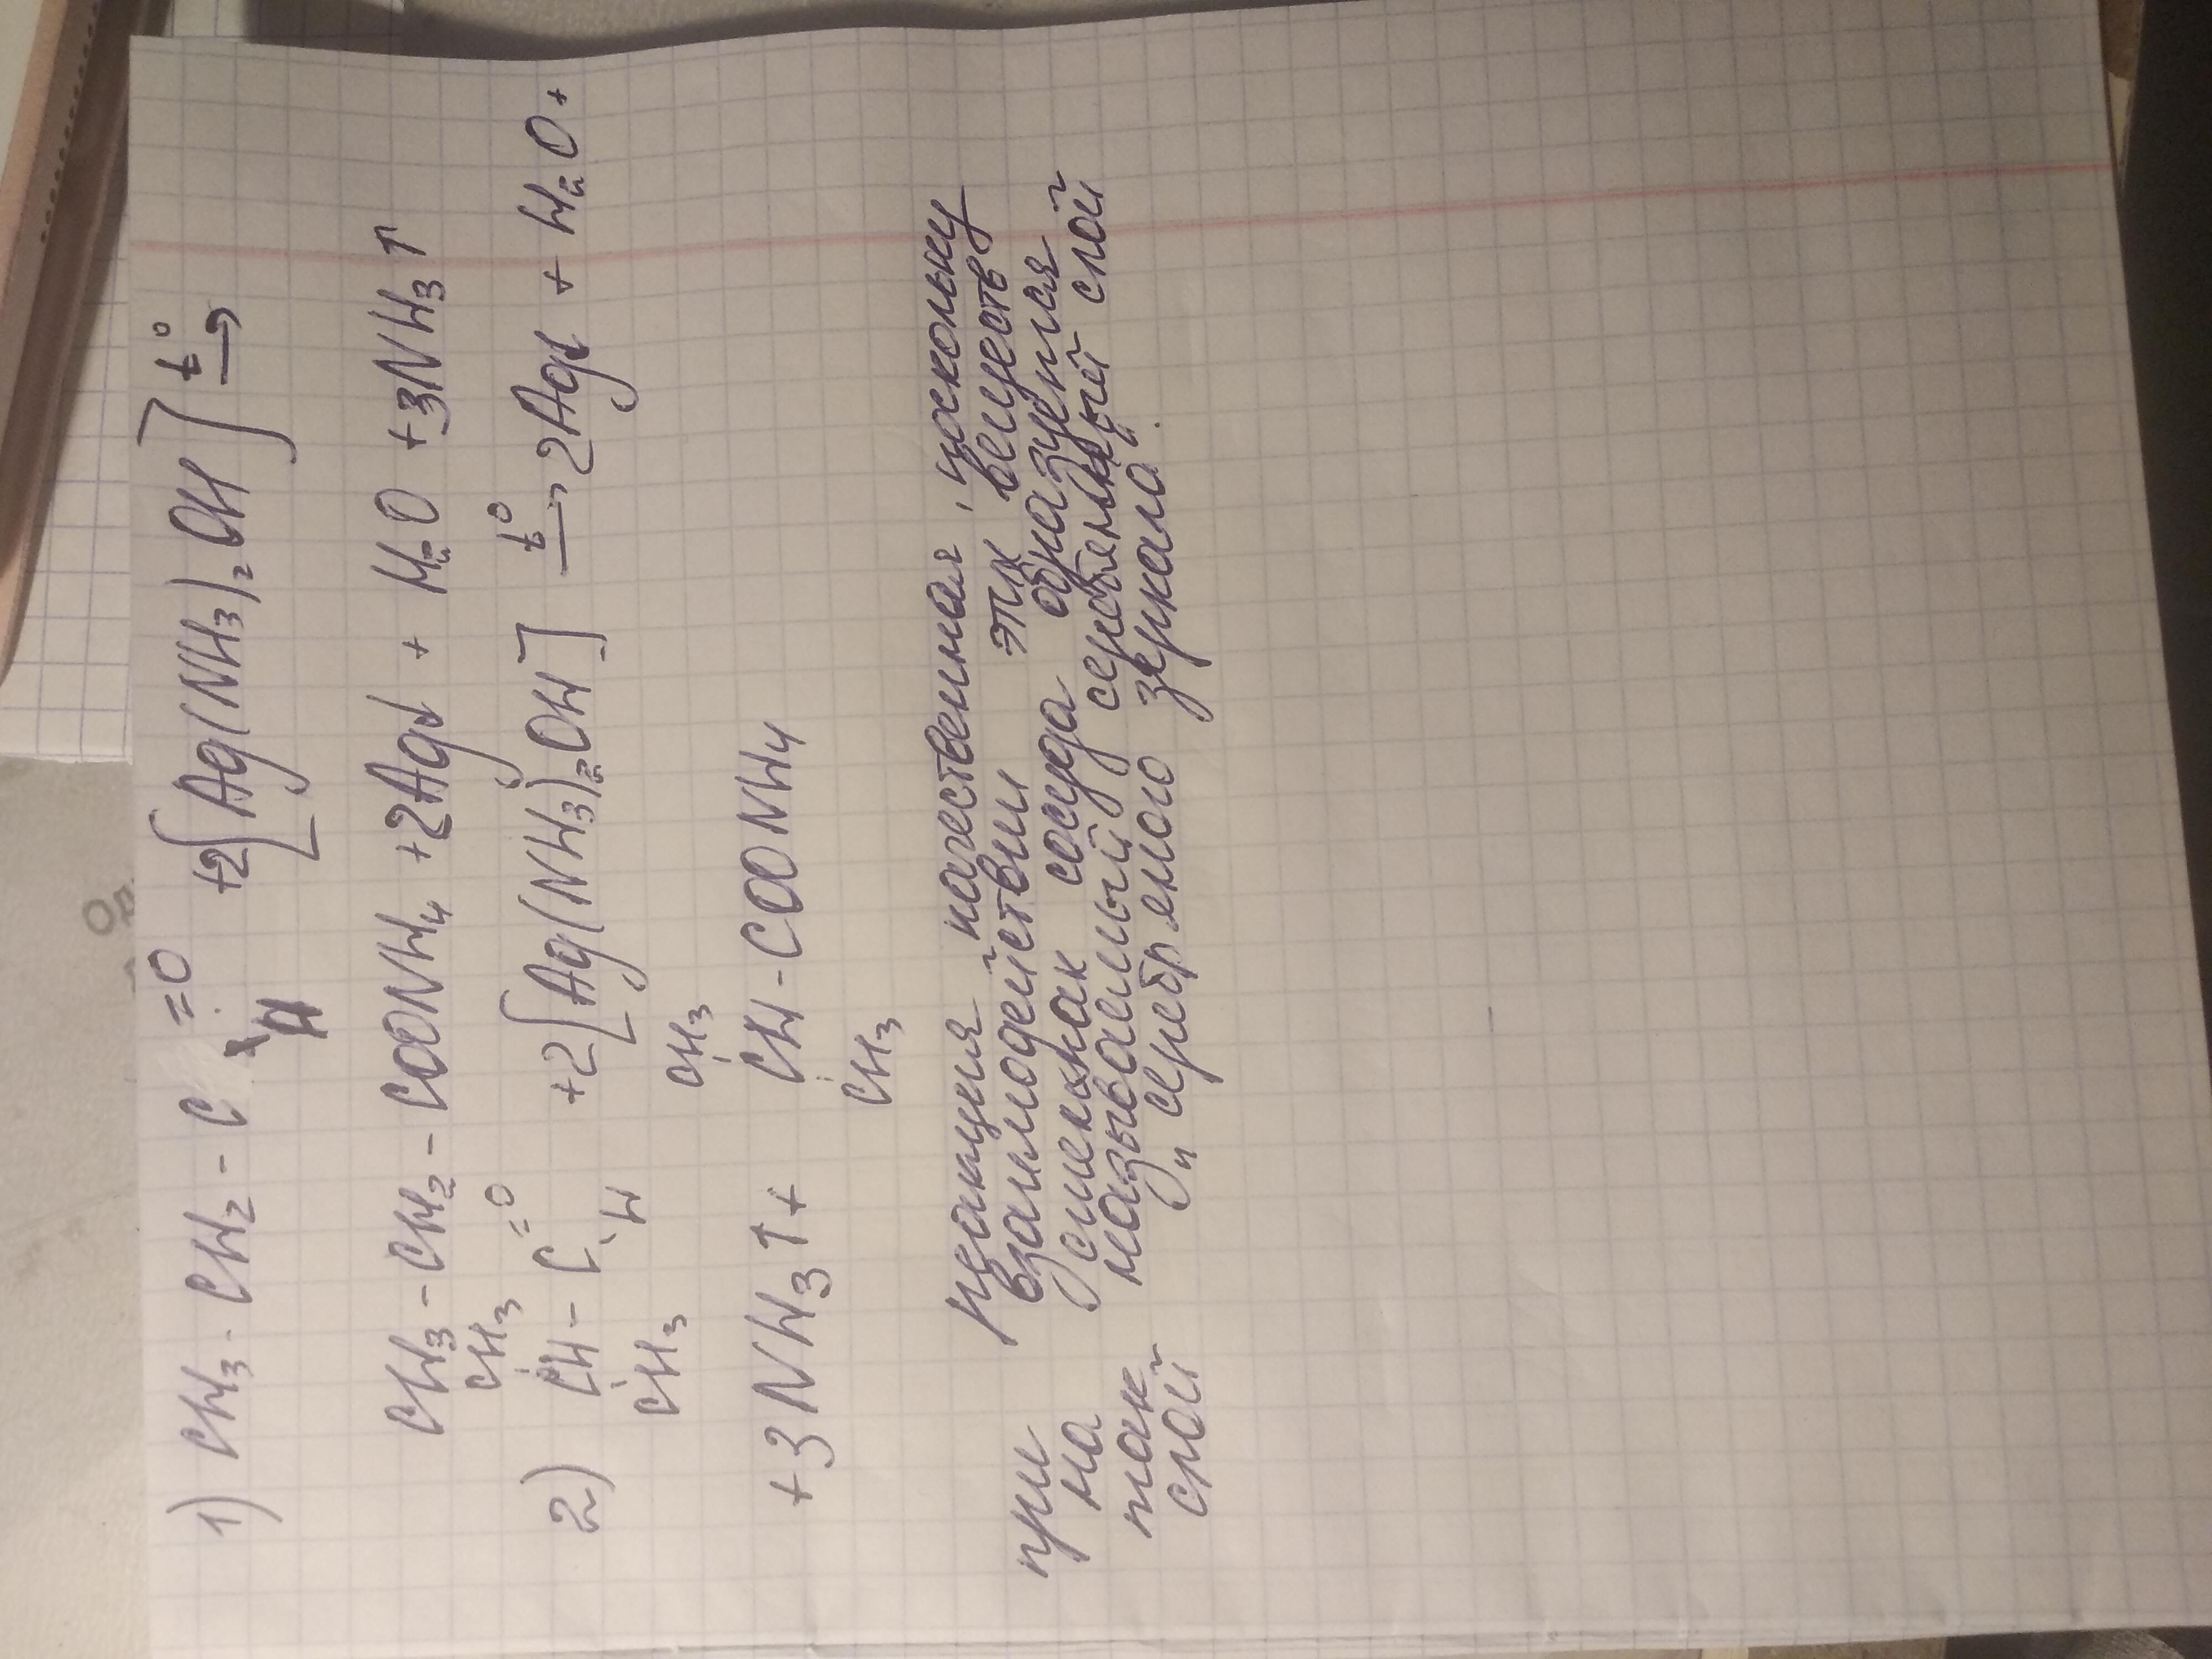 1) CH3 - CH2 - C =O H +2[Ag(NH3)2OH] t° →
CH3 - CH2 - COONH4 + 2Ag↓ + H2O + 3NH3↑
2) CH3 CH - C =O H CH3 +2[Ag(NH3)2OH] t° → 2Ag↓ + H2O +
+ 3NH3↑ + CH3 CH - COONH4 CH3
Реакция качественная, поскольку
при взаимодействии этих веществ
на стенках сосуда образуется
так называемый серебряный слой
слой „серебряного зеркала".